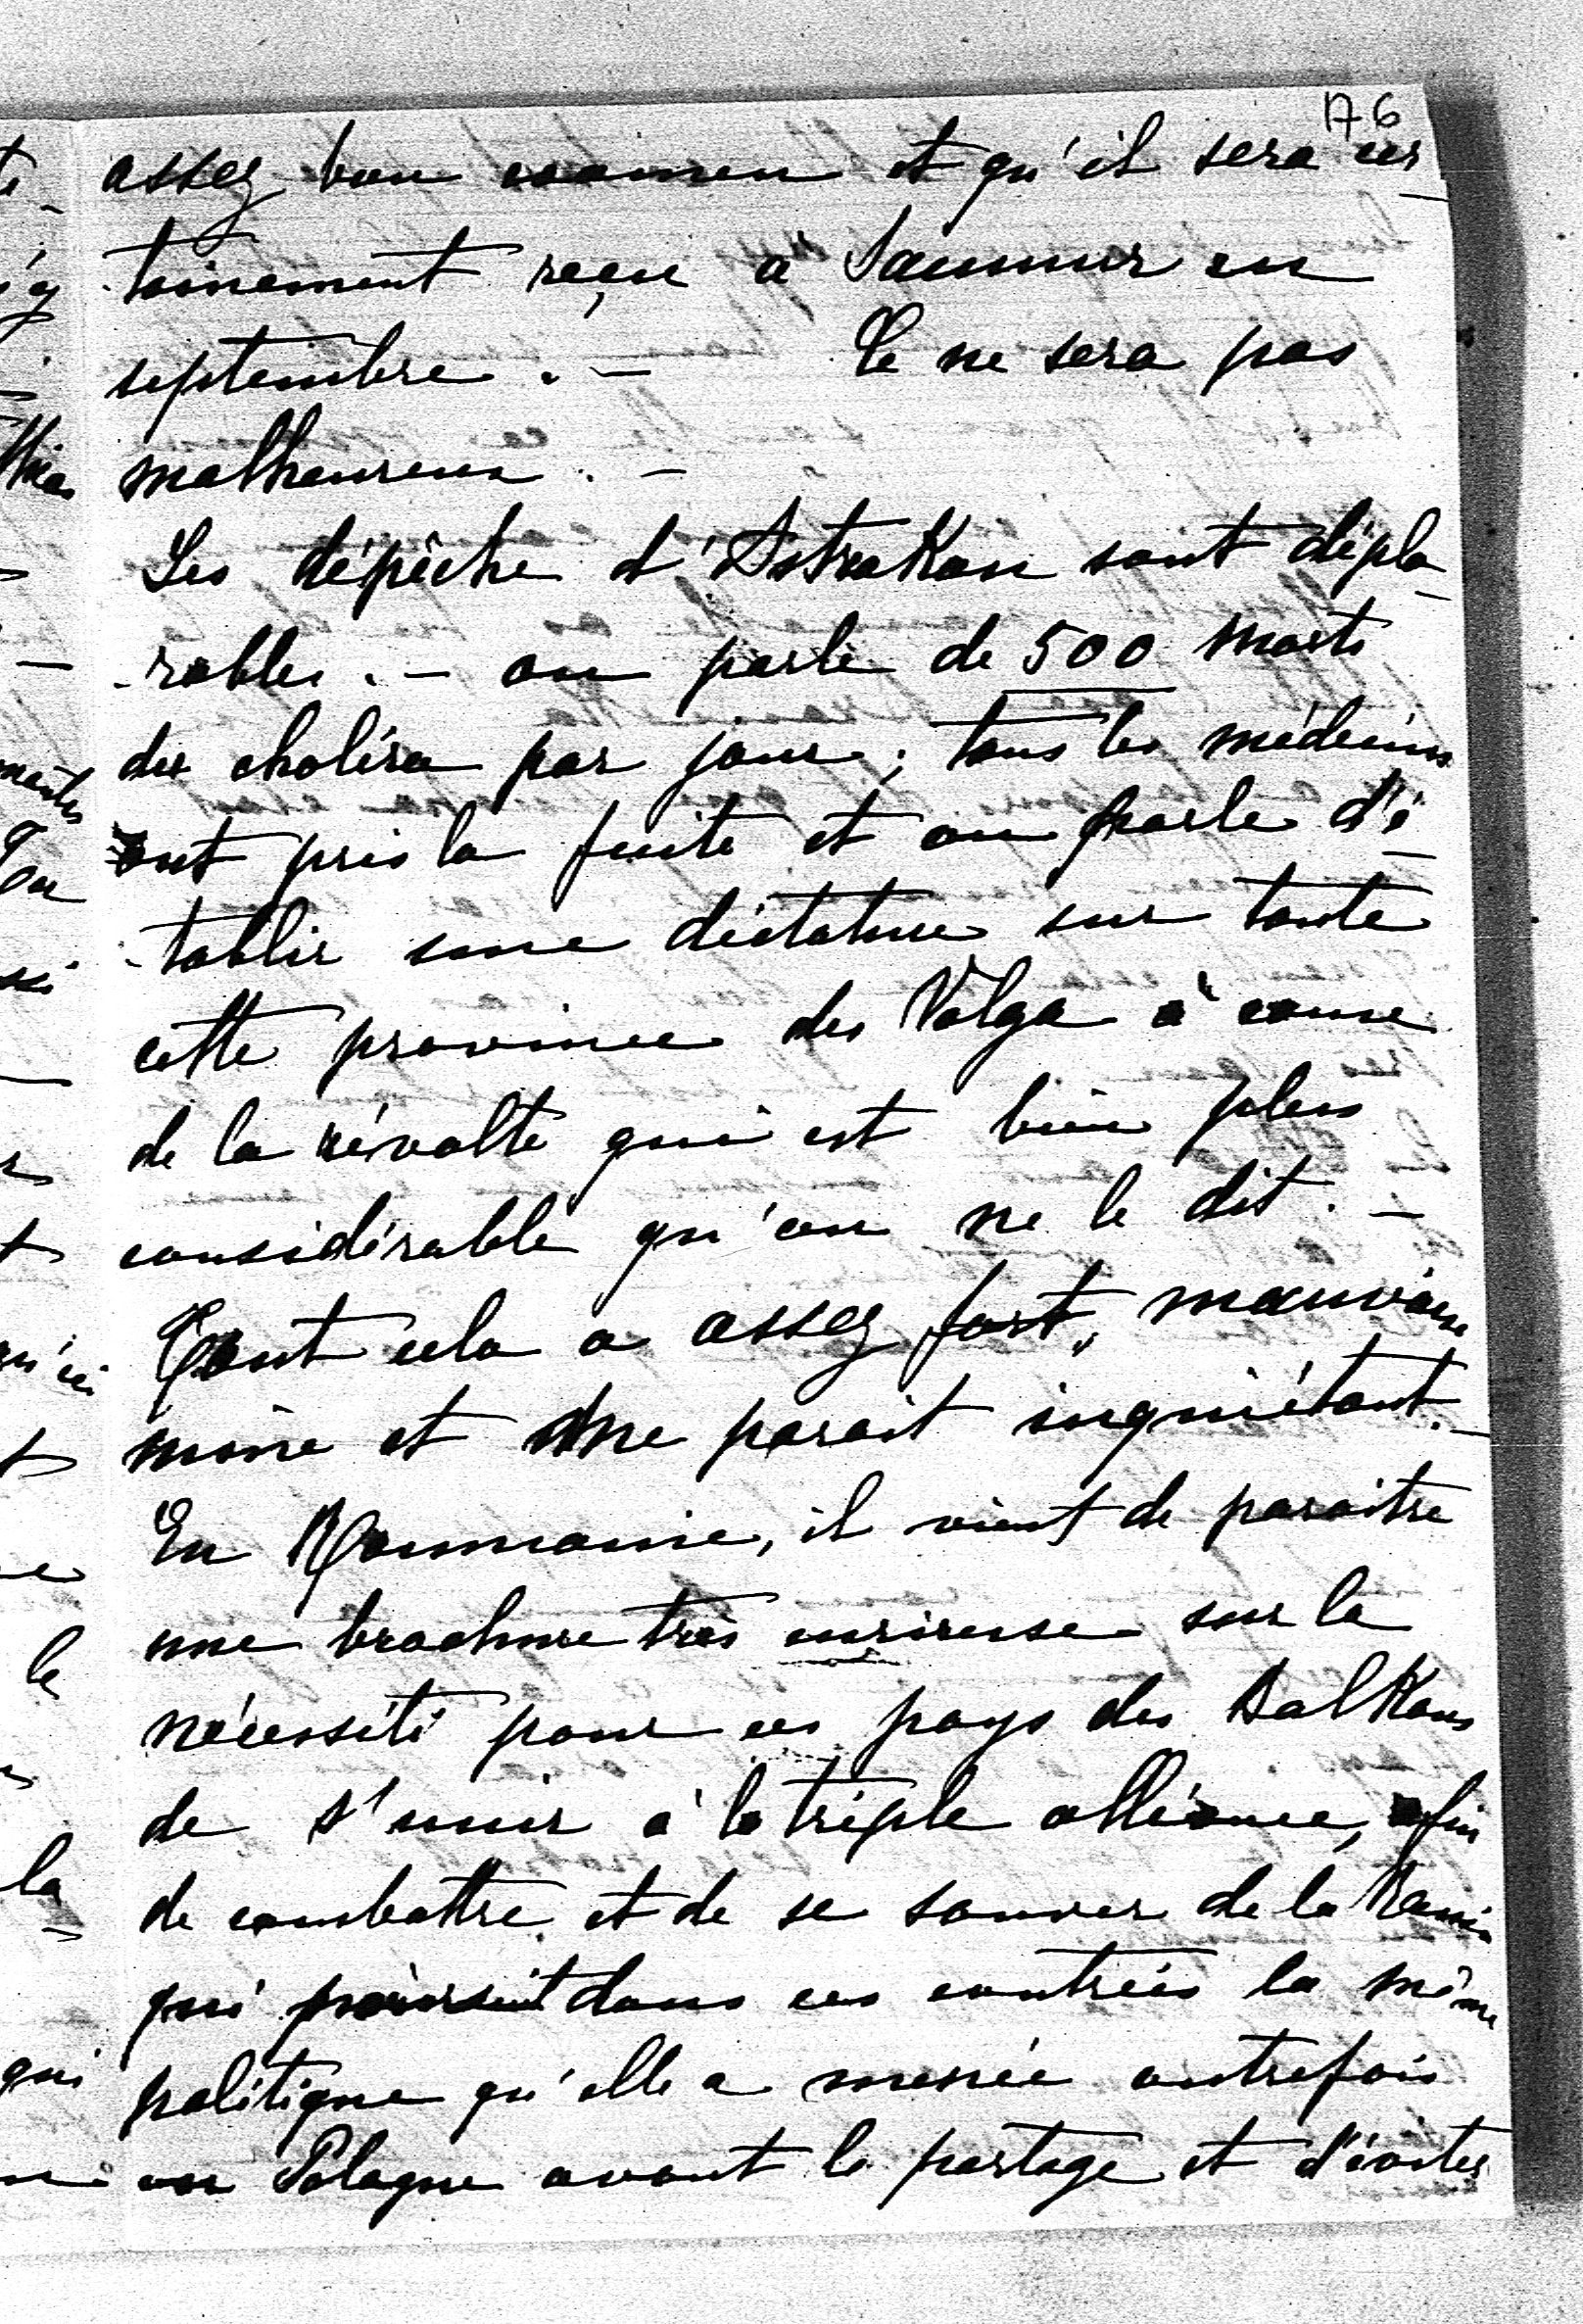 176
assez bon examen et qu'il sera cer
-tainement reçu à Saumur en
septembre. — Ce ne sera pas
malheureux. —
Les dépêche d'Astrakan sont déplo
-rables. — on parle de 500 morts
du choléra par jour; tous les médecins
ont pris la fuite et on parle d'é
-tablir une dictature sur toute
cette province du Volga à cause
de la révolte qui est bien plus
considérable qu'on ne le dit. —
Tout cela a assez fort mauvaise
mine et me parait inquiétant. —
En Roumanie, il vient de paraitre
une brochure très curieuse sur la
nécessité pour ces pays des Balkans
de s'unir à la triple alliance, afin
de combattre et de se sauver de la Russie
qui poursuit dans ces contrées la même
politique qu'elle a menée autrefois
en Pologne avant le partage et d'éviter